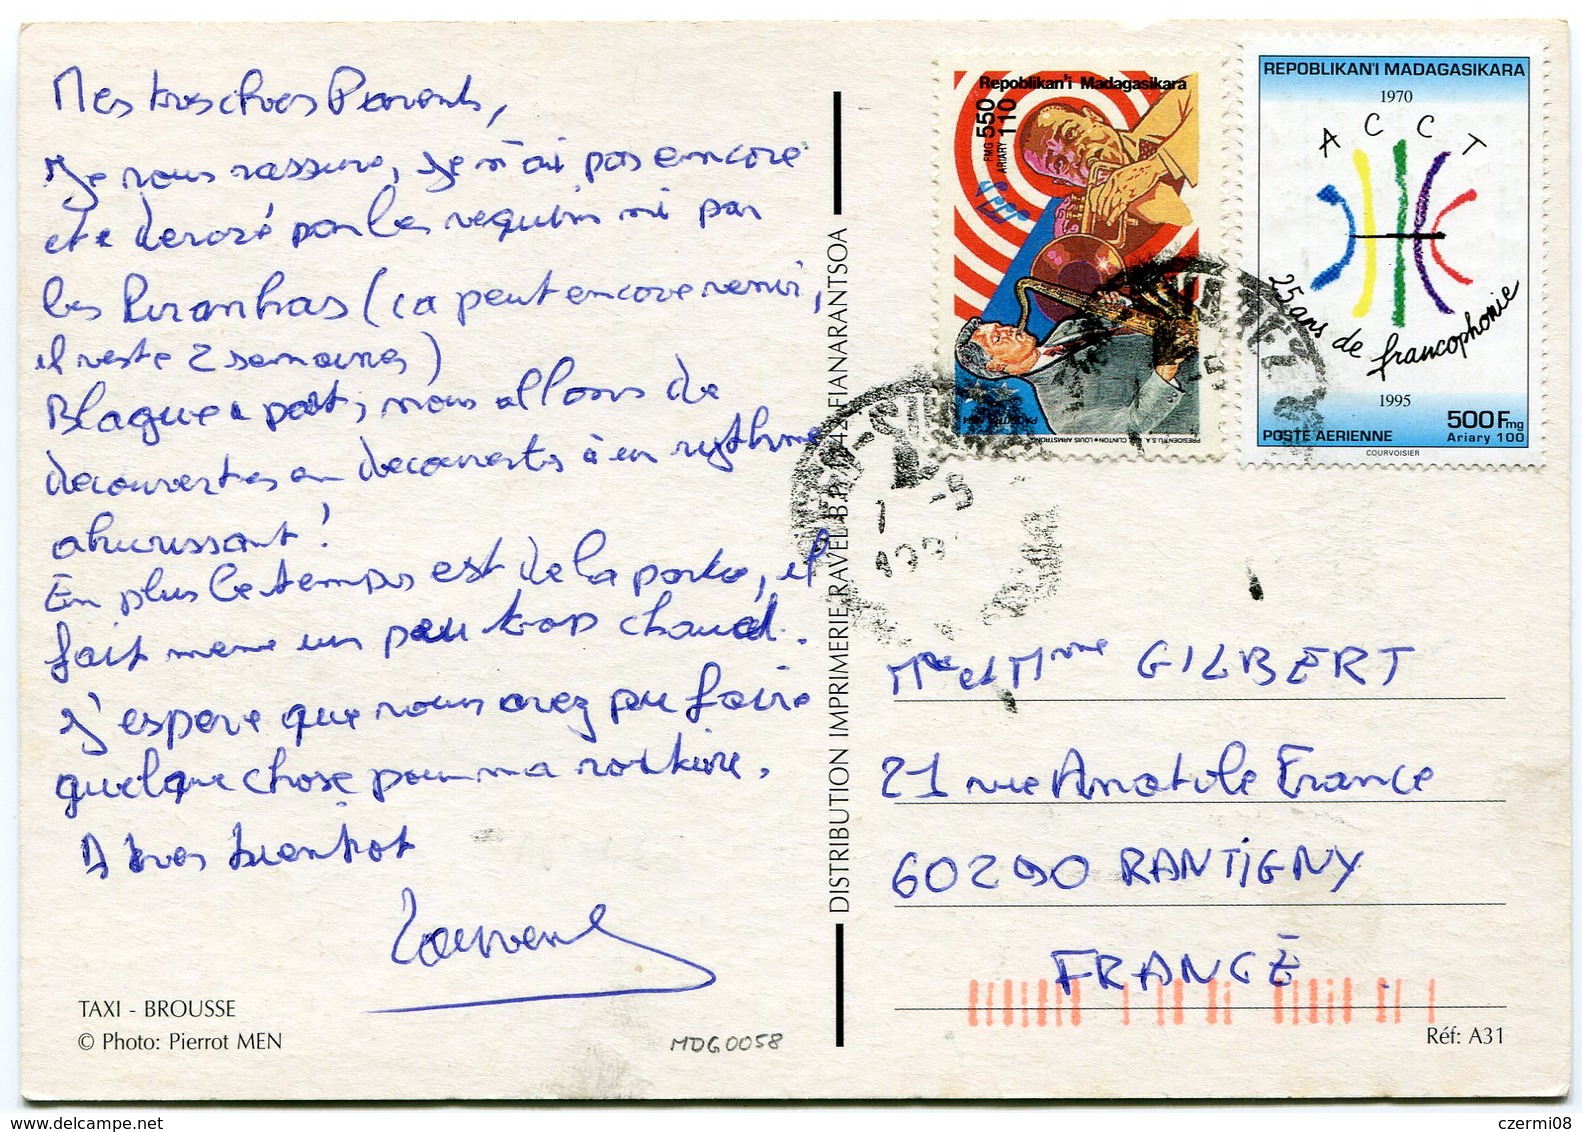 Mes tres chers Parents,
Je vous rassure, Je n'ai pas encore
ete devoré par les requins ni par
les Piranhas (ca peut encore venir,
il reste 2 semaines)
Blague a part, nous allons de
decouvertes en decouvertes à un rythme
ahurissant !
En plus le temps est de la partie, il
fait meme un peu trop chaud.
J'espere que vous avez pu faire
quelque chose pour ma voiture.
A tres bientot
Laurent
TAXI - BROUSSE
© Photo: Pierrot MEN
MDG0058
DISTRIBUTION IMPRIMERIE RAVEL B.P. 1042 FIANARANTSOA
Repoblikan'i Madagasikara
FMG 550
ARIARY 110
PRESIDENT U.S.A. BILL CLINTON • LOUIS ARMSTRONG
REPOBLIKAN'I MADAGASIKARA
1970
ACCT
25 ans de francophonie
1995
500Fmg
Ariary 100
POSTE AERIENNE
COURVOISIER
Mr et Mme GILBERT
21 rue Anatole France
60290 RANTIGNY
FRANCE
Réf: A31
www.delcampe.net
czermi08